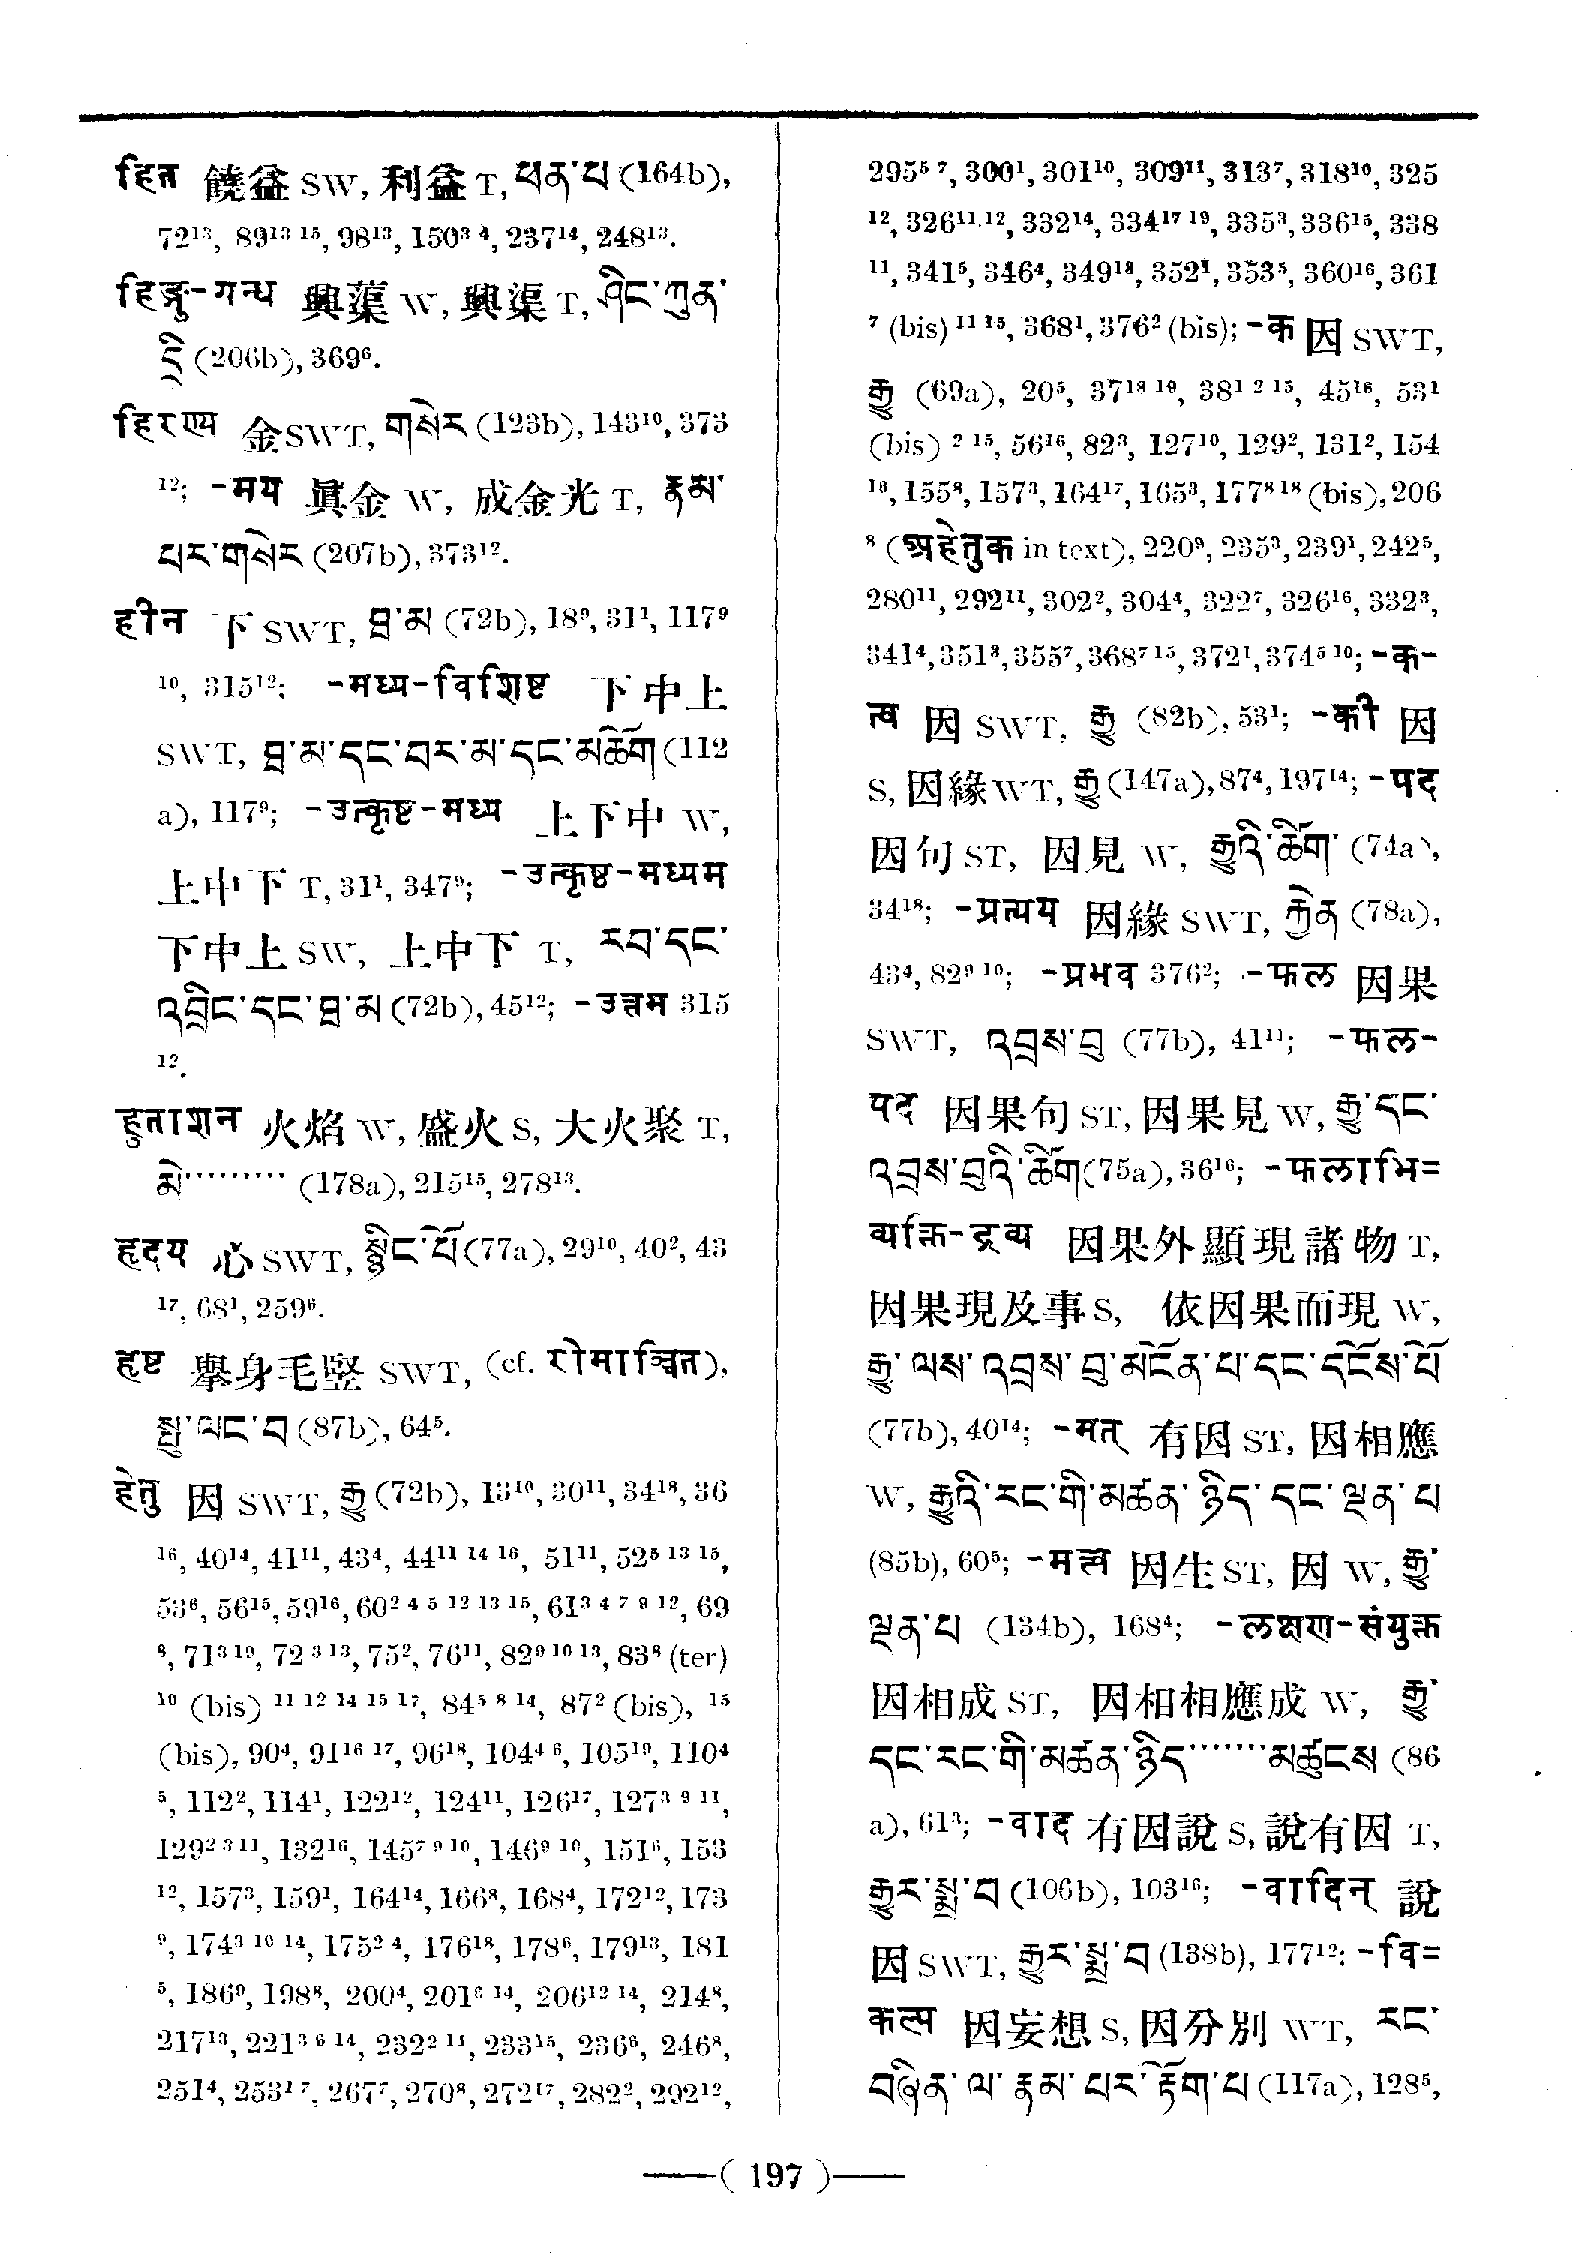 हित 饒益 SW, 利益 T, ཕན་པ (164b),
72¹³, 89¹³ ¹⁵, 98¹³, 150³ ⁴, 237¹⁴, 248¹³.
हिङ्गु-गन्ध 興蕖 W, 興渠 T, ཤིང་ཀུན་
དྲི (206b), 369⁶.
हिरण्य 金SWT, གསེར (123b), 143¹⁰, 373
¹²; -मय 眞金 W, 成金光 T, རྣམ་
པར་གསེར (207b), 373¹².
हीन 下 SWT, ཐ་མ (72b), 18⁹, 31¹, 117⁹
¹⁰, 315¹²; -मध्य-विशिष्ट 下中上
SWT, ཐ་མ་དང་བར་མ་དང་མཆོག (112
a), 117⁹; -उत्कृष्ट-मध्य 上下中 W,
上中下 T, 31¹, 347⁹; -उत्कृष्ट-मध्यम
下中上 SW, 上中下 T, རབ་དང་
འབྲིང་དང་ཐ་མ (72b), 45¹²; -उत्तम 315
¹².
हुताशन 火焰 W, 盛火 S, 大火聚 T,
མེ……… (178a), 215¹⁵, 278¹³.
हृदय 心 SWT, སྙིང་པོ (77a), 29¹⁰, 40², 43
¹⁷, 68¹, 259⁶.
हृष्ट 擧身毛竪 SWT, (cf. रोमाञ्चित),
སྤུ་ལང་བ (87b), 64⁵.
हेतु 因 SWT, རྒྱུ (72b), 13¹⁰, 30¹¹, 34¹⁸, 36
¹⁶, 40¹⁴, 41¹¹, 43⁴, 44¹¹ ¹⁴ ¹⁶, 51¹¹, 52⁵ ¹³ ¹⁵,
53⁶, 56¹⁵, 59¹⁶, 60² ⁴ ⁵ ¹² ¹³ ¹⁵, 61³ ⁴ ⁷ ⁹ ¹², 69
⁸, 71³ ¹⁹, 72 ³ ¹³, 75², 76¹¹, 82⁹ ¹⁰ ¹³, 83⁸ (ter)
¹⁰ (bis) ¹¹ ¹² ¹⁴ ¹⁵ ¹⁷, 84⁵ ⁸ ¹⁴, 87² (bis), ¹⁵
(bis), 90⁴, 91¹⁶ ¹⁷, 96¹⁸, 104⁴ ⁶, 105¹⁹, 110⁴
⁵, 112², 114¹, 122¹², 124¹¹, 126¹⁷, 127³ ⁹ ¹¹,
129² ³ ¹¹, 132¹⁶, 145⁷ ⁹ ¹⁰, 146⁹ ¹⁰, 151⁶, 153
¹², 157³, 159¹, 164¹⁴, 166⁸, 168⁴, 172¹², 173
⁹, 174³ ¹⁰ ¹⁴, 175² ⁴, 176¹⁸, 178⁶, 179¹³, 181
⁵, 186⁹, 198⁸, 200⁴, 201⁶ ¹⁴, 206¹² ¹⁴, 214⁸,
217¹³, 221³ ⁶ ¹⁴, 232² ¹¹, 233¹⁵, 236⁶, 246⁸,
251⁴, 253¹ ⁷, 267⁷, 270⁸, 272¹⁷, 282², 292¹²,
295⁵ ⁷, 300¹, 301¹⁰, 309¹¹, 313⁷, 318¹⁰, 325
¹², 326¹¹ ¹², 332¹⁴, 334¹⁷ ¹⁹, 335³, 336¹⁵, 338
¹¹, 341⁵, 346⁴, 349¹⁸, 352¹, 353⁵, 360¹⁶, 361
⁷ (bis) ¹¹ ¹⁵, 368¹, 376² (bis); -क 因 SWT,
རྒྱུ (69a), 20⁵, 37¹⁸ ¹⁹, 38¹ ² ¹⁵, 45¹⁶, 53¹
(bis) ² ¹⁵, 56¹⁶, 82³, 127¹⁰, 129², 131², 154
¹⁶, 155⁸, 157³, 164¹⁷, 165³, 177⁸ ¹⁸ (bis), 206
⁸ (अहेतुक in text), 220⁹, 235³, 239¹, 242⁵,
280¹¹, 292¹¹, 302², 304⁴, 322⁷, 326¹⁶, 332³,
341⁴, 351⁸, 355⁷, 368⁷ ¹⁵, 372¹, 374⁵ ¹⁰; -क-
त्व 因 SWT, རྒྱུ (82b), 53¹; -की 因
S, 因緣WT, རྒྱུ (147a), 87⁴, 197¹⁴; -पद
因句 ST, 因見 W, རྒྱུའི་ཚིག་ (74a),
34¹⁸; -प्रत्यय 因緣 SWT, རྐྱེན (78a),
43⁴, 82⁹ ¹⁰; -प्रभव 376²; -फल 因果
SWT, འབྲས་བུ (77b), 41¹¹; -फल-
पद 因果句 ST, 因果見 W, རྒྱུ་དང་
འབྲས་བུའི་ཚིག (75a), 36¹⁶; -फलाभि=
व्यक्ति-द्रव्य 因果外顯現諸物 T,
因果現及事 S, 依因果而現 W,
རྒྱུ་ལས་འབྲས་བུ་མངོན་པ་དང་དངོས་པོ
(77b), 40¹⁴; -मत् 有因 ST, 因相應
W, རྒྱུའི་རང་གི་མཚན་ཉིད་དང་ལྡན་པ
(85b), 60⁵; -मत्त्व 因生 ST, 因 W, རྒྱུ་
ལྡན་པ (134b), 168⁴; -लक्षण-संयुक्त
因相成 ST, 因相相應成 W, རྒྱུ་
དང་རང་གི་མཚན་ཉིད……མཚུངས (86
a), 61³; -वाद 有因說 S, 說有因 T,
རྒྱུར་སྨྲ་བ (106b), 103¹⁶; -वादिन् 說
因 SWT, རྒྱུར་སྨྲ་བ (138b), 177¹²; -वि=
कल्प 因妄想 S, 因分別 WT, རང་
བཞིན་ལ་རྣམ་པར་རྟོག་པ (117a), 128⁵,
( 197 )